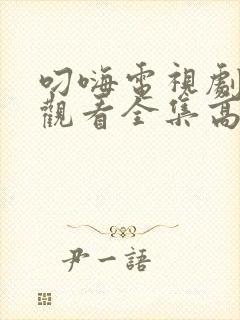 叨嗨電視劇
觀看全集高
尹一語